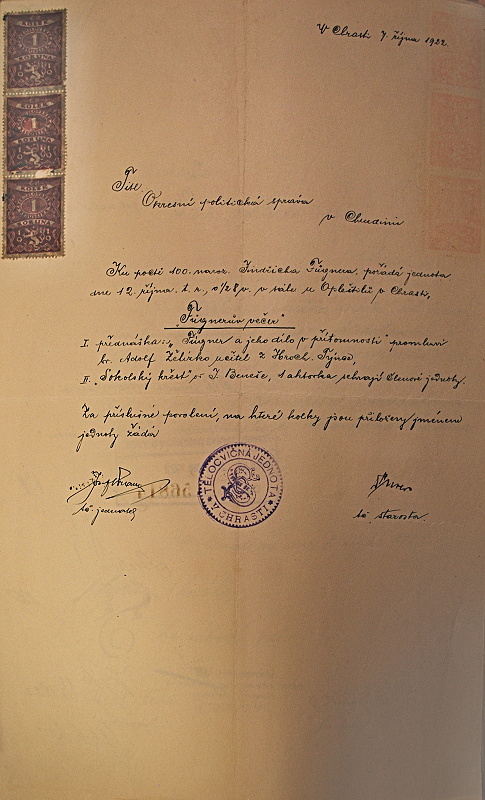 KOLEK
1
KORUNA
KOLEK
1
KORUNA
KOLEK
1
KORUNA
V Chrasti 7. října 1922.
Titl.
Okresní politická správa
v Chrudimi
Ku poctě 100. naroz. Jindřicha Fügnera, pořádá jednota
dne 12. října t. r., o ½8 v. v sále u Opletilů v Chrasti,
„Fügnerův večer"
I. přednáška: „Fügner a jeho dílo v přítomnosti" promluví
br. Adolf Zelinko učitel z Hroch. Týnce,
II. „Sokolský křest" od J. Beneše, 1 aktovka sehrají členové jednoty.
Za příslušné povolení, na které kolky jsou přiloženy jménem
jednoty žádá
Josef
tč. jednatel
TĚLOCVIČNÁ JEDNOTA
V CHRASTI
tč starosta.